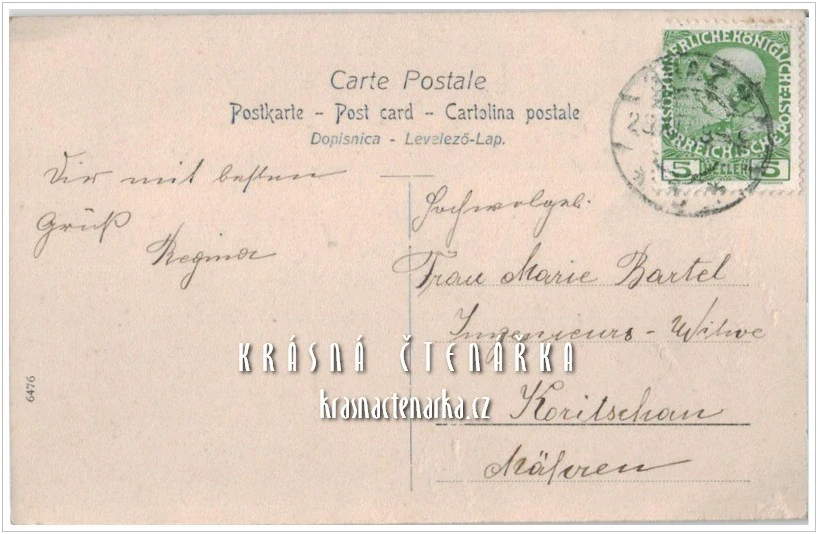 Carte Postale
Postkarte - Post card - Cartolina postale
Dopisnica - Levelező-Lap.
Dir mit besten
Gruß
Regina
Hochwolgeb.
Frau Marie Bartel
Ingenieurs-Witwe
Koritschan
Mähren
KRÁSNÁ ČTENÁŘKA
krasnactenarka.cz
6476
5 HELLER 5